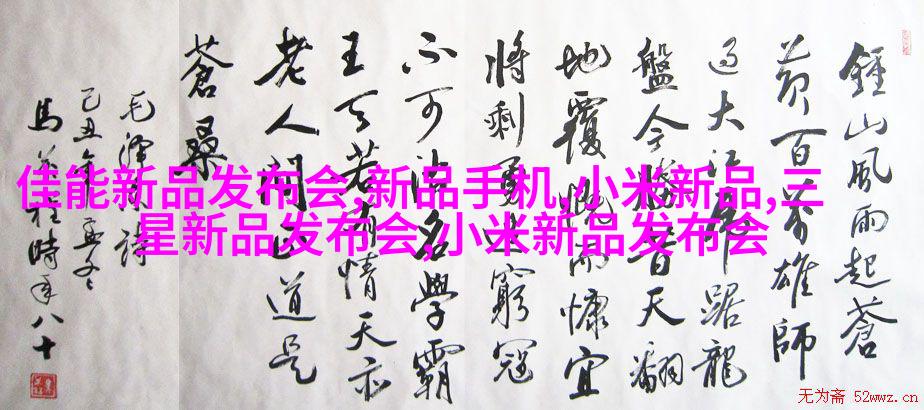 鍾山風雨起蒼
黄百萬雄師
過大江虎踞龍
盤今勝昔天翻
地覆慨而慷宜
將剩勇追窮寇
不可沽名學霸
王天若有情天亦
老人間正道是
蒼桑
毛澤東詩
己丑年孟冬
馬 柱時年八十
佳能新品发布会,新品手机,小米新品,三
星新品发布会,小米新品发布会
无为斋 52wwz.cn